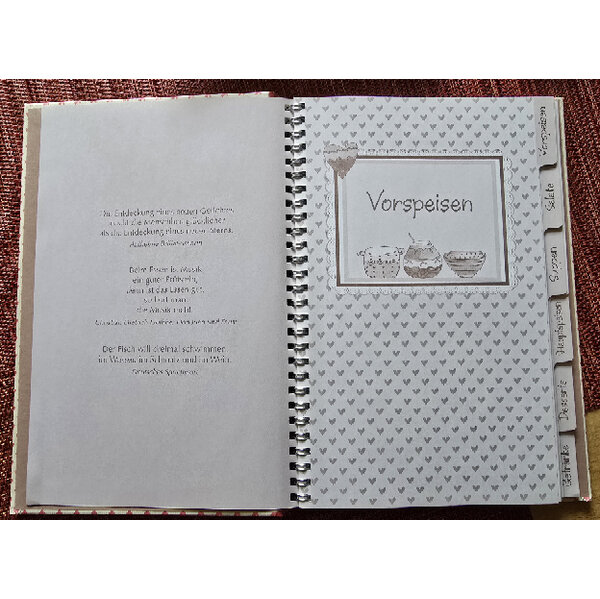 Die Entdeckung eines neuen Gerichtes
macht die Menschheit glücklicher
als die Entdeckung eines neuen Sterns.
Beim Essen ist Musik
ein guter Prüfstein,
denn ist das Essen gut,
so hört man
die Musik nicht.
Der Fisch will dreimal schwimmen:
im Wasser, im Schmalz und im Wein.
Vorspeisen
Vorspeisen
Salate
Suppen
Hauptspeisen
Desserts
Getränke